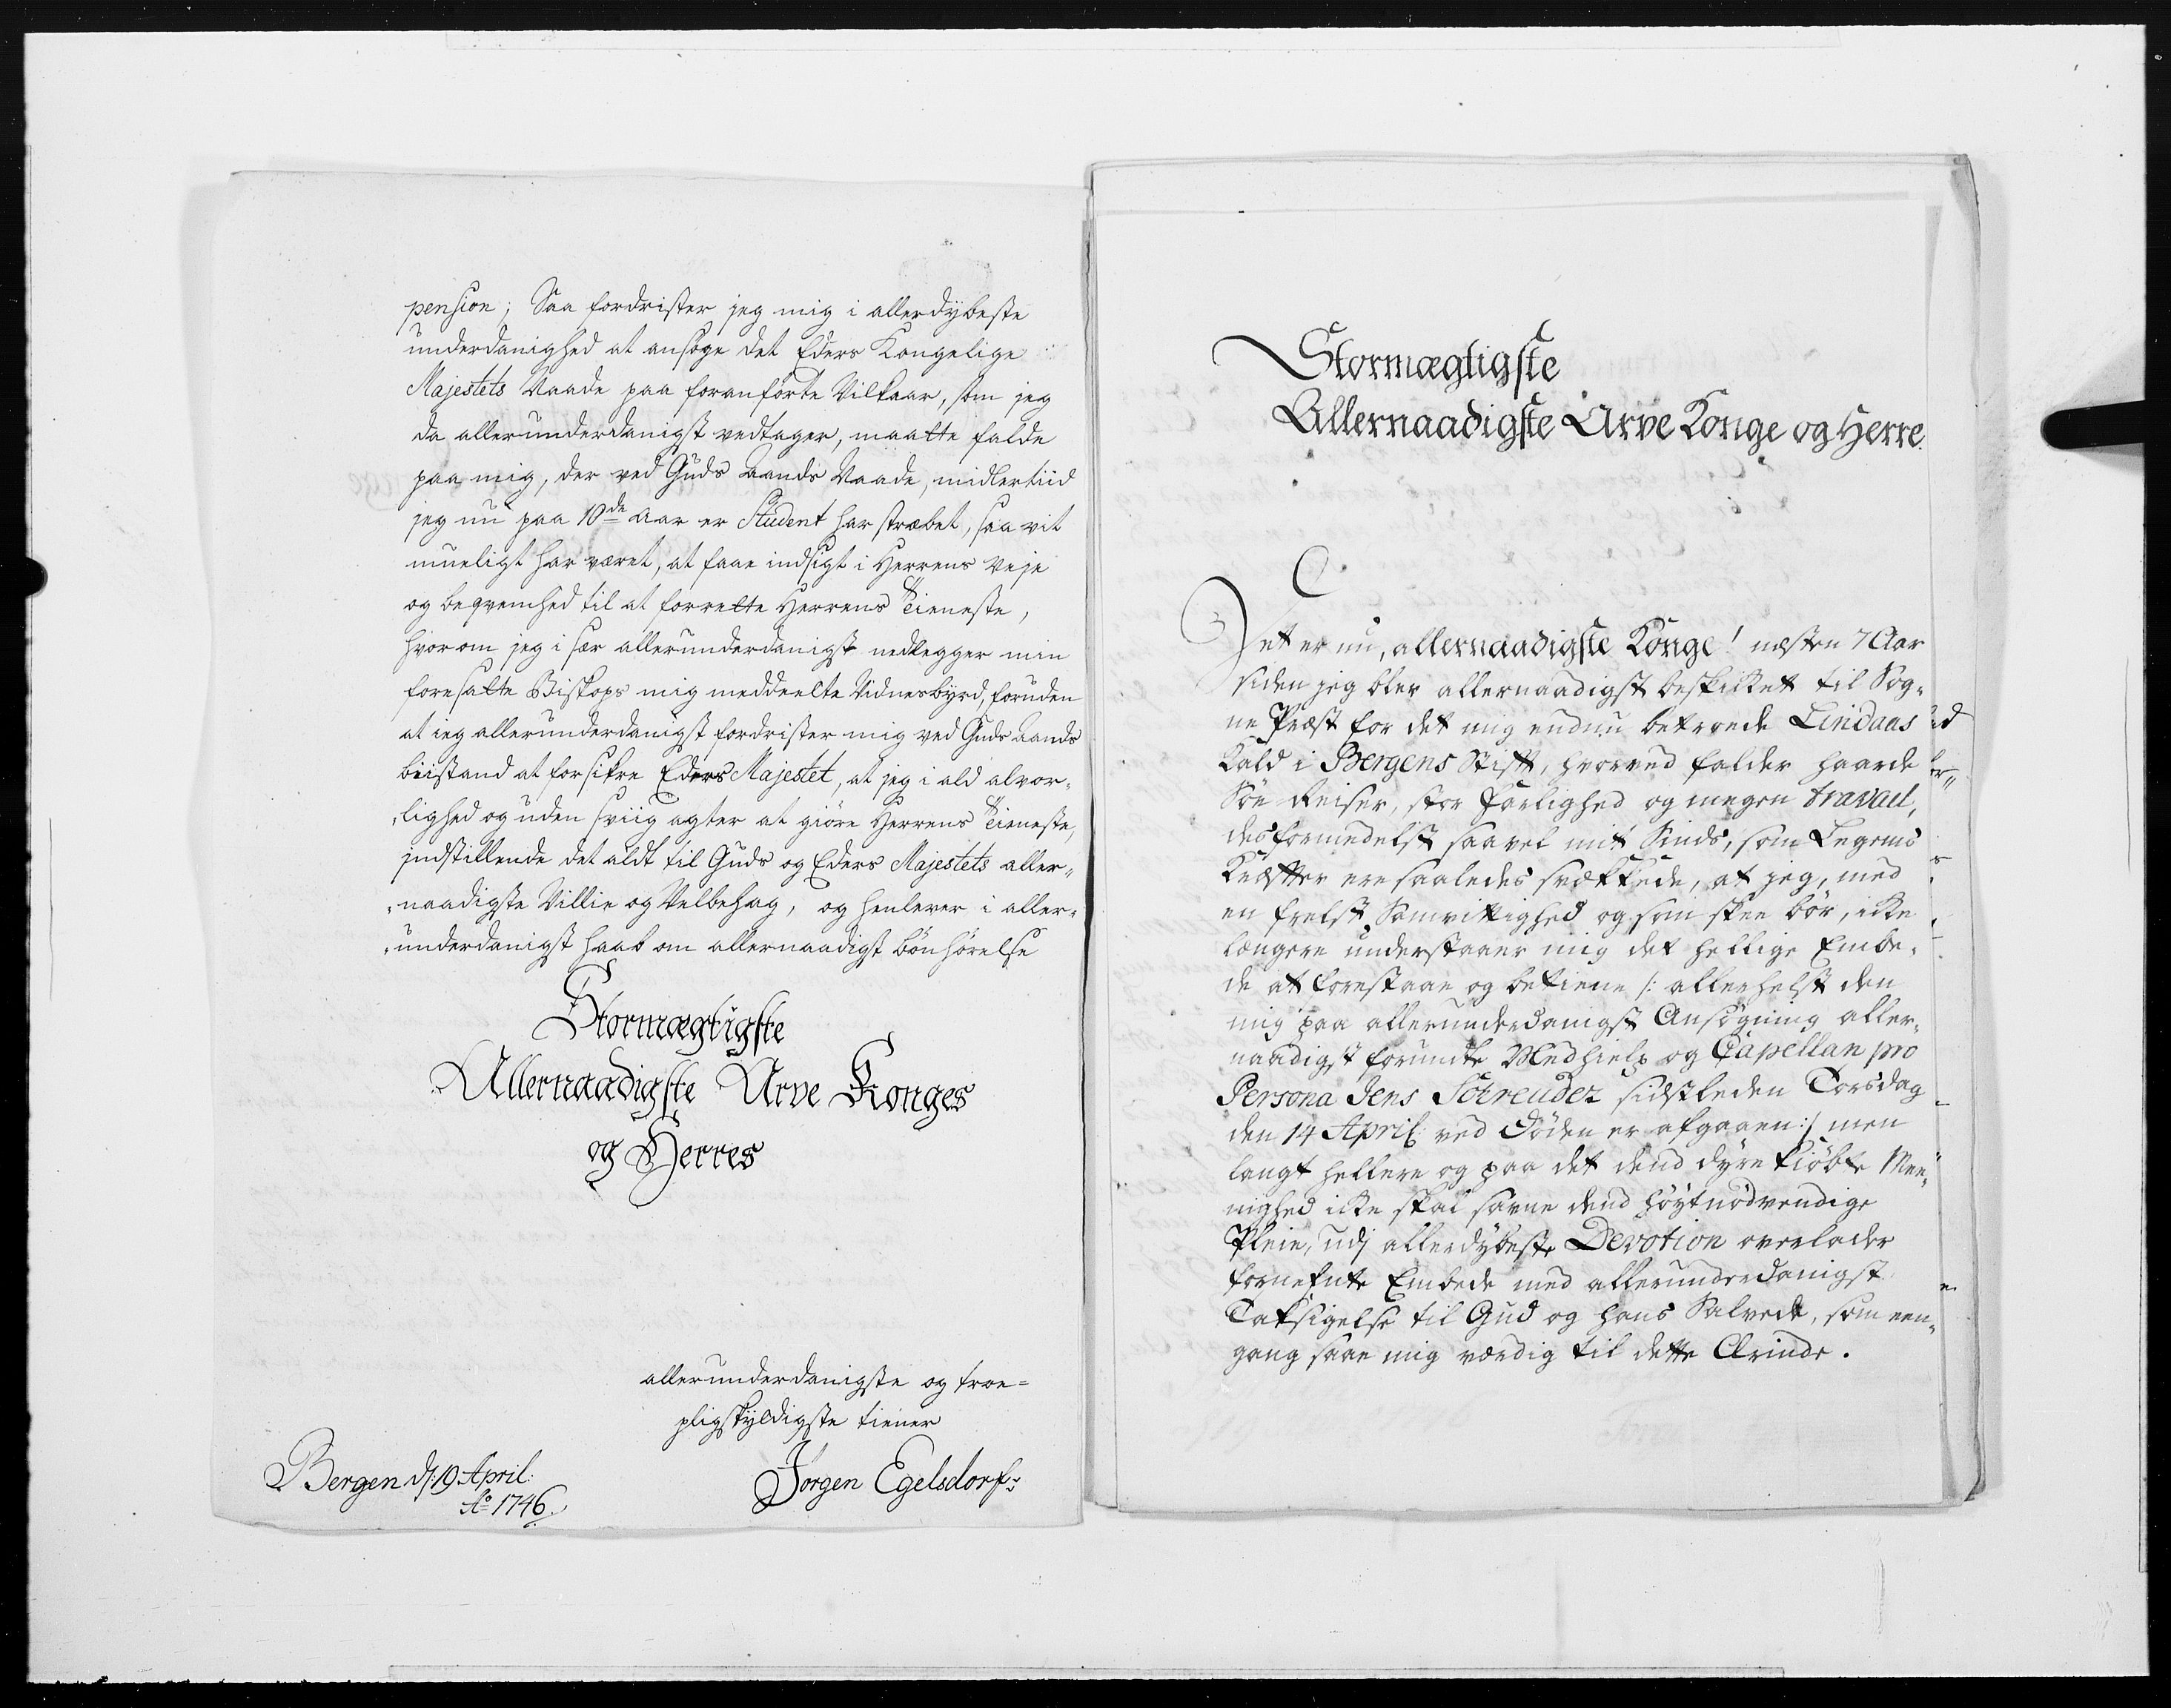 pension; Saa fordrister jeg mig i allerdybeste
underdanighed at ansøge det Eders Kongelige
Majestets Naade paa foranførte Vilkaar, som jeg
da allerunderdanigst vedtager, maatte falde
paa mig, der ved Guds Aands Naade, midlertiid
jeg nu paa 10de Aar er Student har stræbet, saa vit
mueligt har været, at faae indsigt i Herrens Veje
og beqvemhed til at forrette Herrens Tieneste,
hvorom jeg i sær allerunderdanigst nedlegger min
foresatte Biskops mig meddeelte Vidnesbyrd, foruden
at ieg allerunderdanigst fordrister mig ved Guds Aands
biistand at forsikre Eders Majestet, at jeg i ald alvor-
lighed og uden sviig agter at giøre Herrens Tieneste,
indstillende det aldt til Guds og Eders Majestets aller-
naadigste Villie og Velbehag, og henlever i aller-
underdanigst haab om allernaadigst bønhørelse
Stormægtigste
Allernaadigste Arve Konges
og Herres
allerunderdanigste og troe=
pligskyldigste tiener
Bergen d: 19 April:
Ao 1746.
Jørgen Egelsdorf:
Stormægtigste
Allernaadigste Arve Konge og Herre.
Det er nu, allernaadigste Konge! næsten 7 Aar
siden jeg blev allernaadigst beskikket til Sog-
ne Præst for det mig endnu betroede Lindaas
Kald i Bergens Stift, hvorved falder haarde
Søe Reiser, stor farlighed og megen travail,
desformedelst saavel mit Sinds, som Legems
Kræfter ere saaledes svækkede, at jeg, med
en frelst Samvittighed og som skee bør, icke
længere understaaer mig det hellige Embe-
de at forestaae og betiene /: allerhelst den
mig paa allerunderdanigst Ansøgning aller-
naadigst forundte Medhielp og Capellan pro
Persona Jens Sötreuder sidstleden Torsdag
den 14 April: ved Døden er afgaaen :/ men
langt hellere og paa det dend dyre kiøbte Mee-
nighed icke skal savne dend høytnødvendige
Pleie, udj allerdybeste Devotion overlader
fornefnte Embede med allerunderdanigst
Taksigelse til Gud og hans Salvede, som een-
gang saae mig værdig til dette Ærinde.